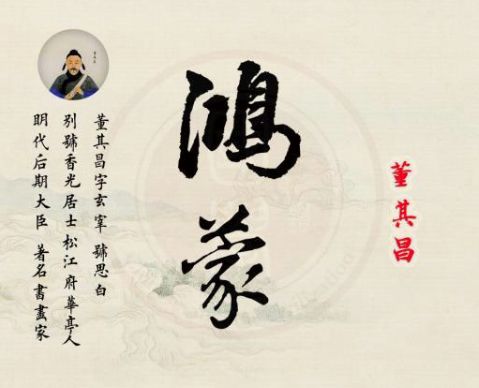 鴻蒙
董其昌
董其昌字玄宰 號思白
別號香光居士松江府華亭人
明代后期大臣 著名書畫家